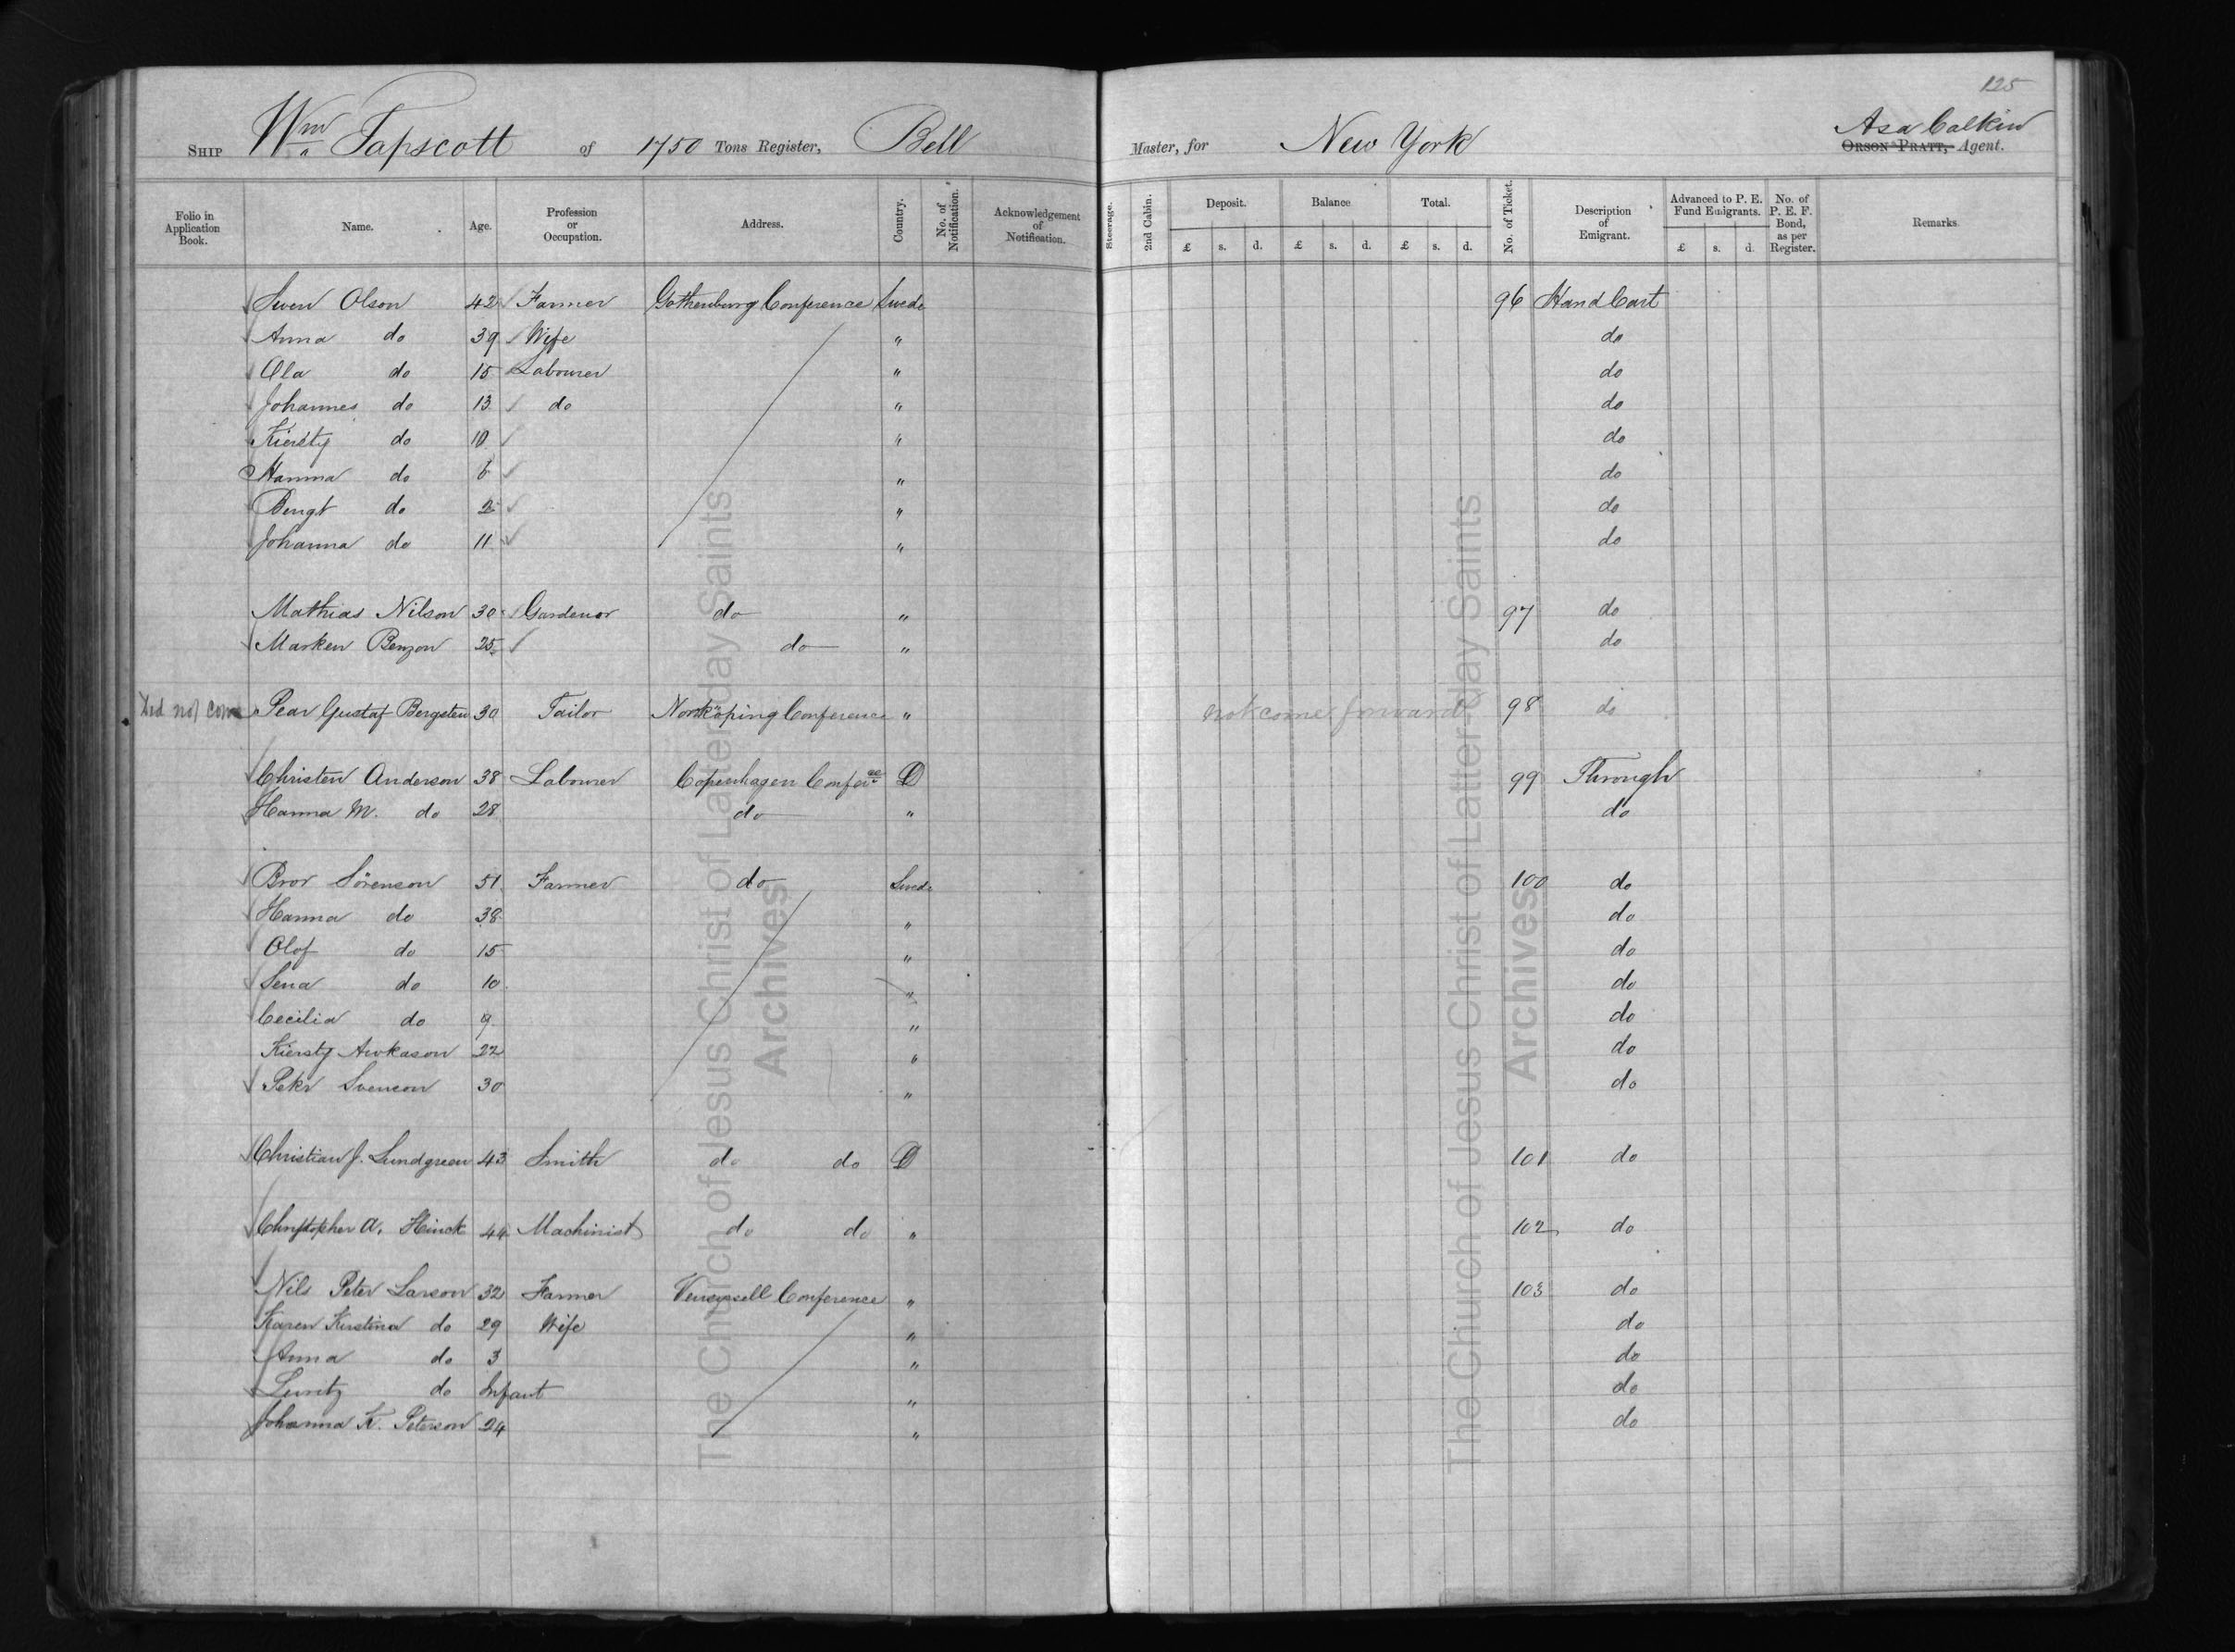 125
Ship Wm Tapscott of 1750 Tons Register, Bell Master, for New York Asa Calkin
Orson Pratt, Agent.
Folio in Application Book. Name. Age. Profession or Occupation. Address. Country. No. of Notification. Acknowledgement of Notification. Steerage. 2nd Cabin. Deposit. Balance Total. No. of Ticket. Description of Emigrant. Advanced to P. E. Fund Emigrants. No. of P. E. F. Bond, as per Register. Remarks
£ s. d. £ s. d. £ s. d. £ s. d.
Swen Olson 42 Farmer Gothenburg Conference Swede 96 Hand Cart
Anna do 39 Wife " do
Ola do 15 Labourer " do
Johannes do 13 do " do
Kiersty do 10 " do
Hanna do 6 " do
Bengt do 2 " do
Johanna do 11 " do
Mathias Nilson 30 Gardenor do " 97 do
Marken Benzon 25 do " do
Did not come Pear Gustaf Bergsten 30 Tailor Norrköping Conference " not come forward 98 do
Christen Anderson 38 Labourer Copenhagen Confce D 99 Through
Hanna M. do 28 do " do
Bror Sörenson 51 Farmer do Swede 100 do
Hanna do 38 " do
Olof do 15 " do
Sena do 10 " do
Cecilia do 9 " do
Kiersty 22 " do
Petr Svenson 30 " do
Christian J. Lundgreen 43 Smith do do D 101 do
Christopher A. Hinck 44 Machinist do do " 102 do
Nils Peter Larson 32 Farmer Vensysell Conference " 103 do
Karen Kirstina do 29 Wife " do
Anna do 3 " do
do Infant " do
Johanna K. Peterson 24 " do
The Church of Jesus Christ of Latter-day Saints
Archives
The Church of Jesus Christ of Latter-day Saints
Archives